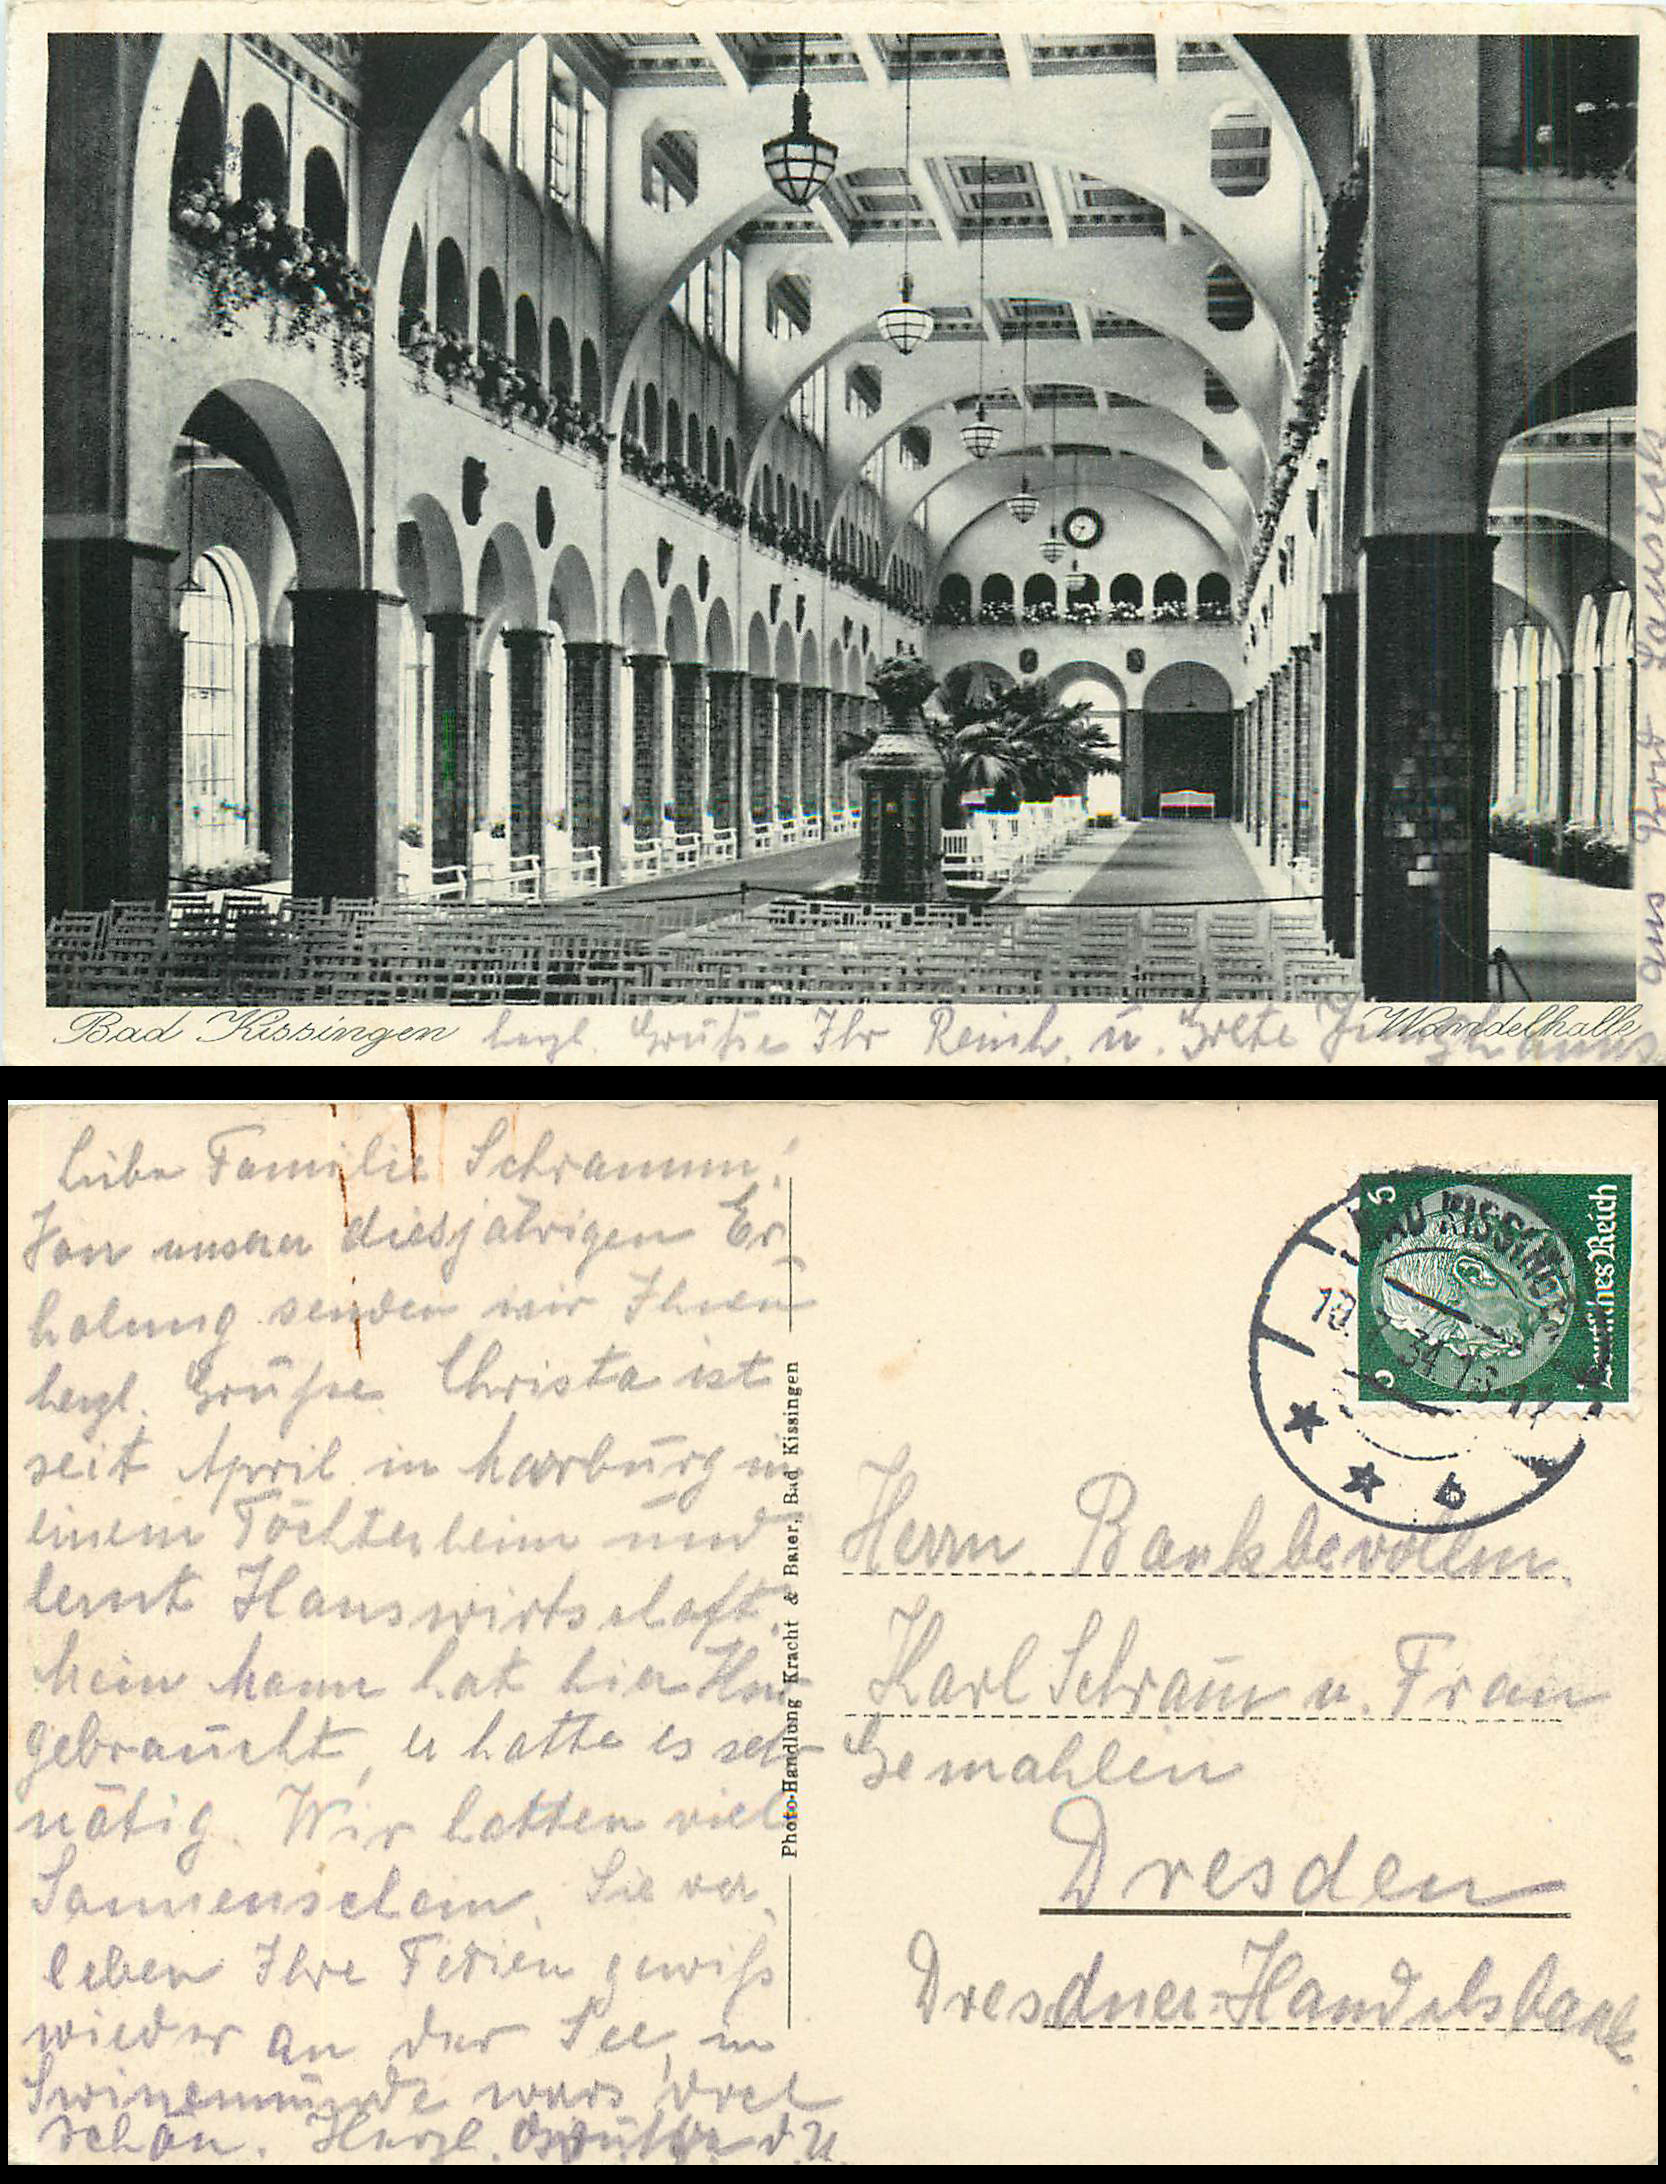 Bad Kissingen
Wandelhalle
herzl. Grüße Ihr Reinh. u. Grete
aus Bad Lausick.
Liebe Familie Schramm!
Von unserer diesjährigen Er-
holung senden wir Ihnen
herzl. Grüße. Christa ist
seit April in Marburg in
einem Töchterheim und
lernt Hauswirtschaft.
Mein Mann hat hier Kur
gebraucht, er hatte es sehr
nötig. Wir hatten viel
Sonnenschein. Sie ver-
leben Ihre Ferien gewiß
wieder an der See, in
Swinemünde wars doch
schön. Herzl. Grüße d. U.
Photo-Handlung Kracht & Baier, Bad Kissingen
Deutsches Reich
5 5
BAD KISSINGEN
18 34 16-17
* * b
Herrn Bankbevollm.
Karl Schramm u. Frau
Gemahlin
Dresden
Dresdner-Handelsbank